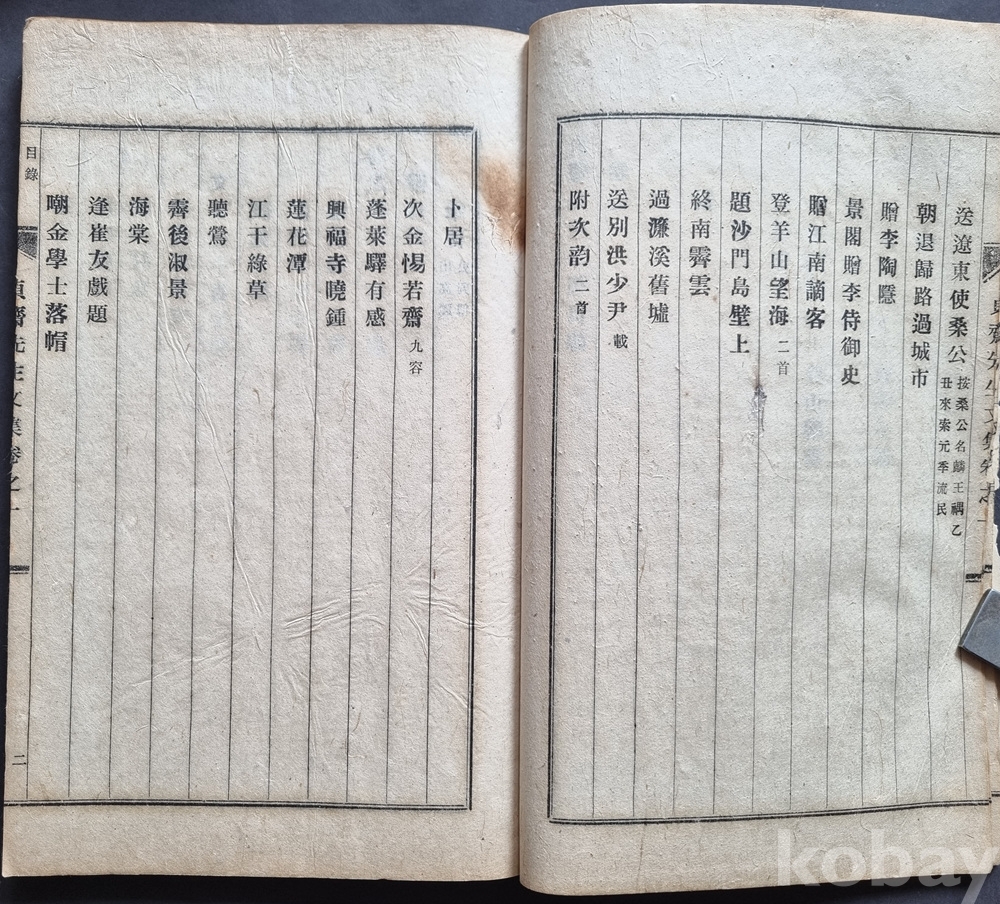 送遼東使桑公 按桑公名麟王禑乙丑來索元季流民
朝退歸路過城市
贈李陶隱
景閣贈李侍御史
贈江南謫客
登羊山望海 二首
題沙門島壁上
終南霽雲
過濂溪舊墟
送別洪少尹 載
附次韵 二首
卜居
次金惕若齋 九容
蓬萊驛有感
興福寺曉鍾
蓮花潭
江干綠草
聽鶯
霽後淑景
海棠
逢崔友戲題
嘲金學士落帽
目錄
齋先生文集卷之一
二
kobay